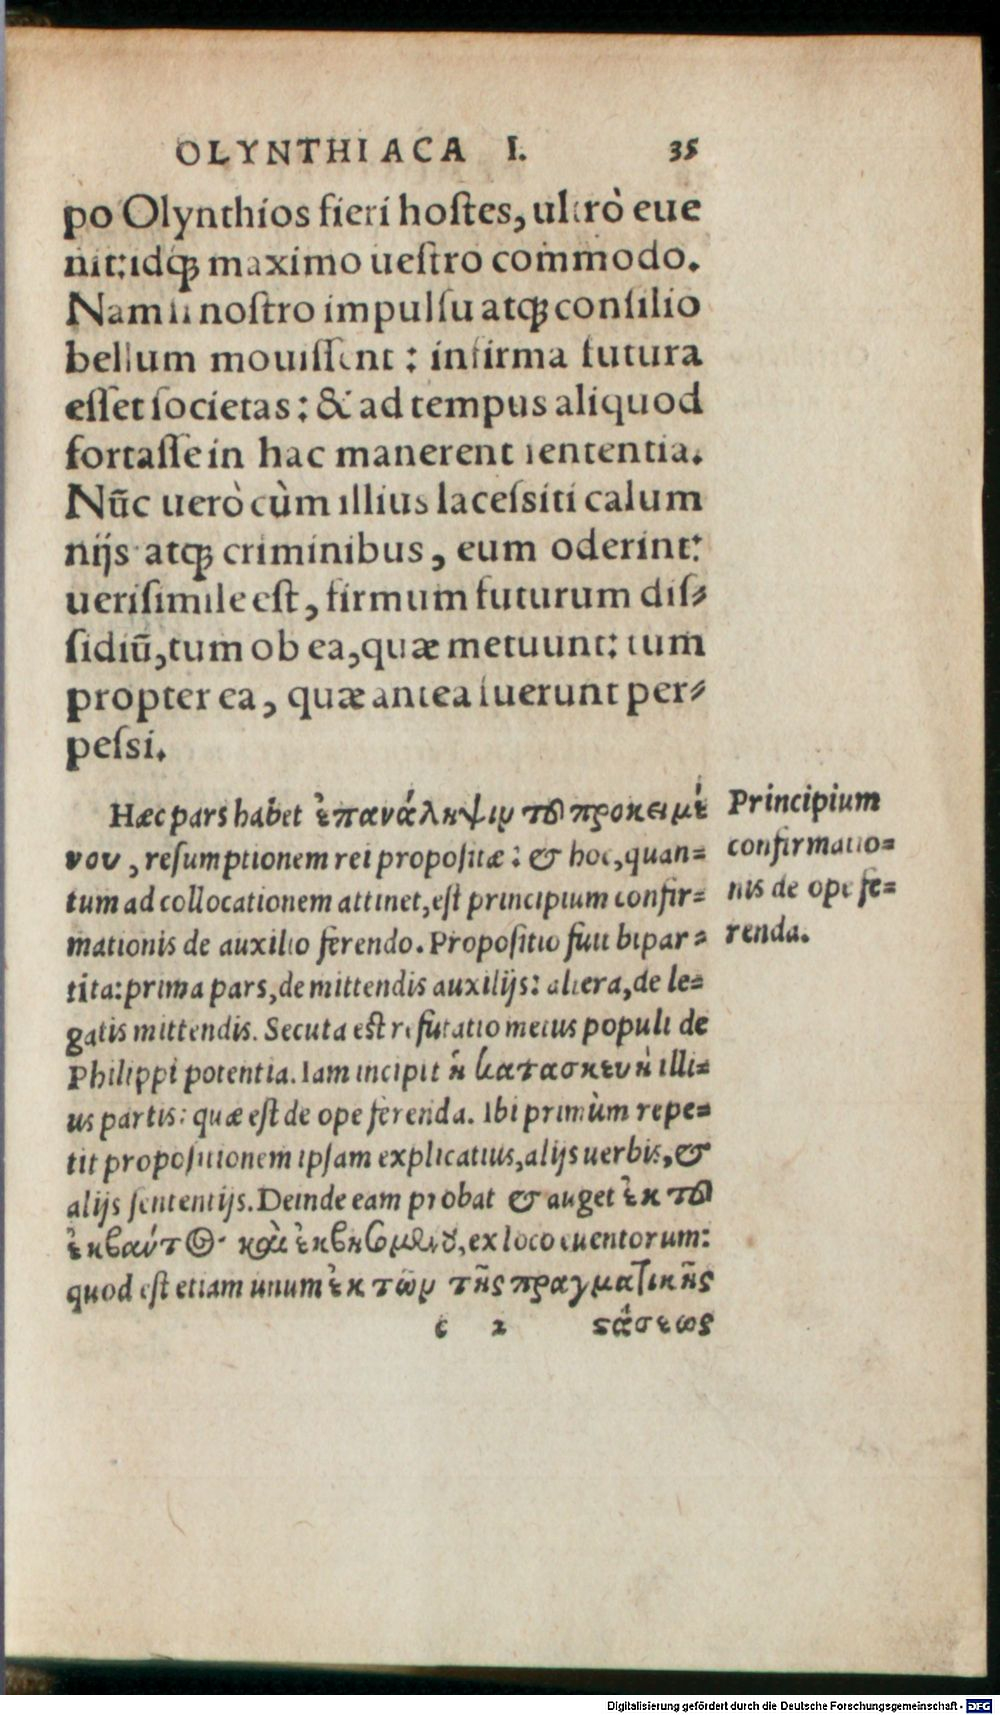 OLYNTHIACA I. 35
po Olynthios fieri hoſtes, ultrò eue
nit: idq; maximo ueſtro commodo.
Nam ii noſtro impulſu atq; conſilio
bellum mouiſſent: infirma futura
eſſet ſocietas: & ad tempus aliquod
fortaſſe in hac manerent ſententia.
Nūc uerò cùm illius laceſsiti calum
nijs atq; criminibus, eum oderint:
ueriſimile eſt, firmum futurum diſ-
ſidiū, tum ob ea, quæ metuunt: tum
propter ea, quæ antea fuerunt per-
peſsi.
Hæc pars habet ἐπανάληψιν τοῦ προκειμέ
νου, reſumptionem rei propoſitæ: & hoc, quan-
tum ad collocationem attinet, eſt principium confir-
mationis de auxilio ferendo. Propoſitio fuit bipar-
tita: prima pars, de mittendis auxilijs: altera, de le-
gatis mittendis. Secuta eſt refutatio metus populi de
Philippi potentia. Iam incipit ἡ κατασκευὴ illi-
us partis: quæ eſt de ope ferenda. Ibi primùm repe-
tit propoſitionem ipſam explicatius, alijs uerbis, &
alijs ſententijs. Deinde eam probat & auget ἐκ τοῦ
ἐκβαύτος καὶ ἐκβησομένου, ex loco euentorum:
quod eſt etiam unum ἐκ τῶν τῆς πραγματικῆς
c 2 στάσεως
Principium
confirmatio-
nis de ope fe-
renda.
Digitalisierung gefördert durch die Deutsche Forschungsgemeinschaft - DFG